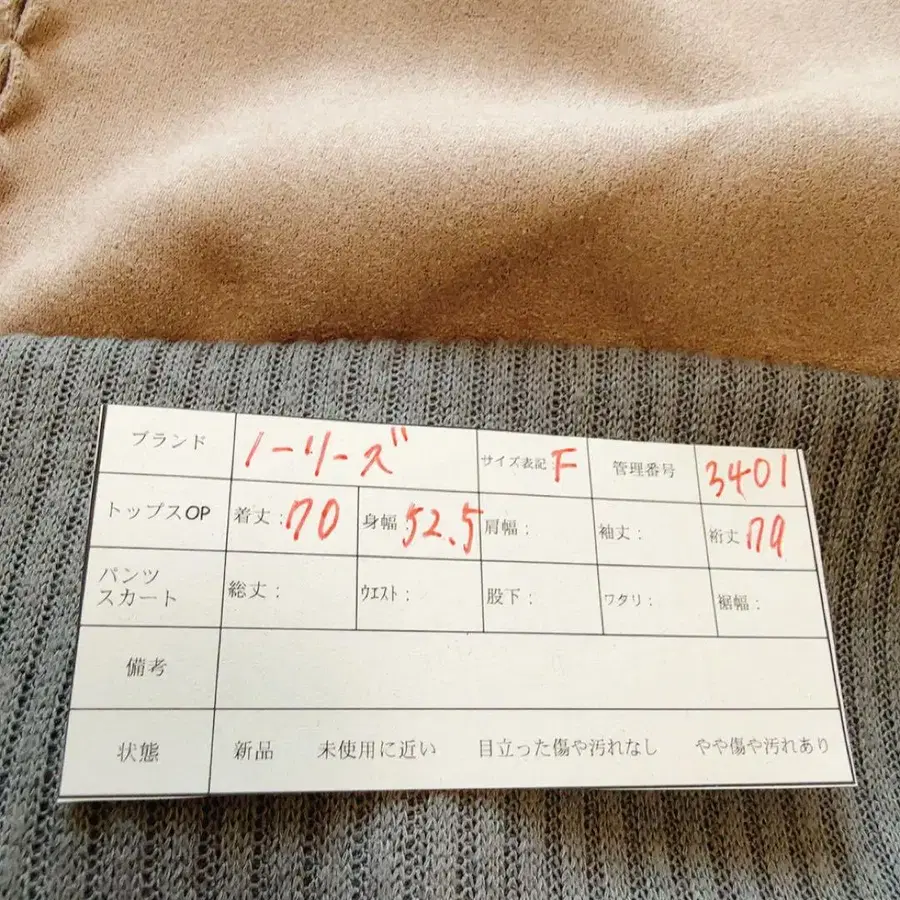 ブランド ノーリーズ サイズ表記 F 管理番号 3401
トップスOP 着丈：70 身幅：52.5 肩幅： 袖丈： 裄丈 79
パンツ
スカート 総丈： ウエスト： 股下： ワタリ： 裾幅：
備考
状態 新品 未使用に近い 目立った傷や汚れなし やや傷や汚れあり